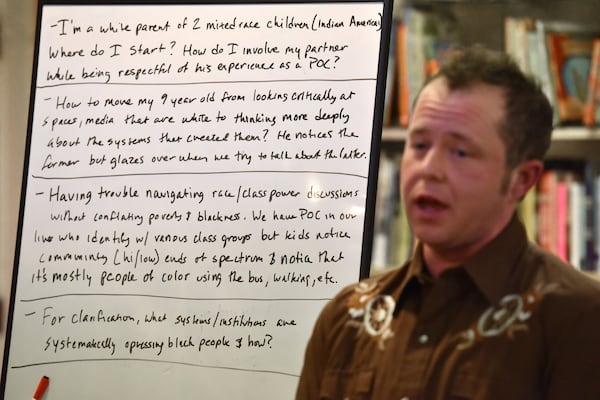 - I'm a white parent of 2 mixed race children (Indian American)
Where do I start? How do I involve my partner
while being respectful of his experience as a POC?
- How to move my 9 year old from looking critically at
spaces, media that are white to thinking more deeply
about the systems that created them? He notices the
former but glazes over when we try to talk about the latter.
- Having trouble navigating race/class power discussions
without conflating poverty & blackness. We have POC in our
lives who identify w/ various class groups but kids notice
community (hi/low) ends of spectrum & notice that
it's mostly people of color using the bus, walking, etc.
- For clarification, what systems/institutions are
systematically opressing black people & how?